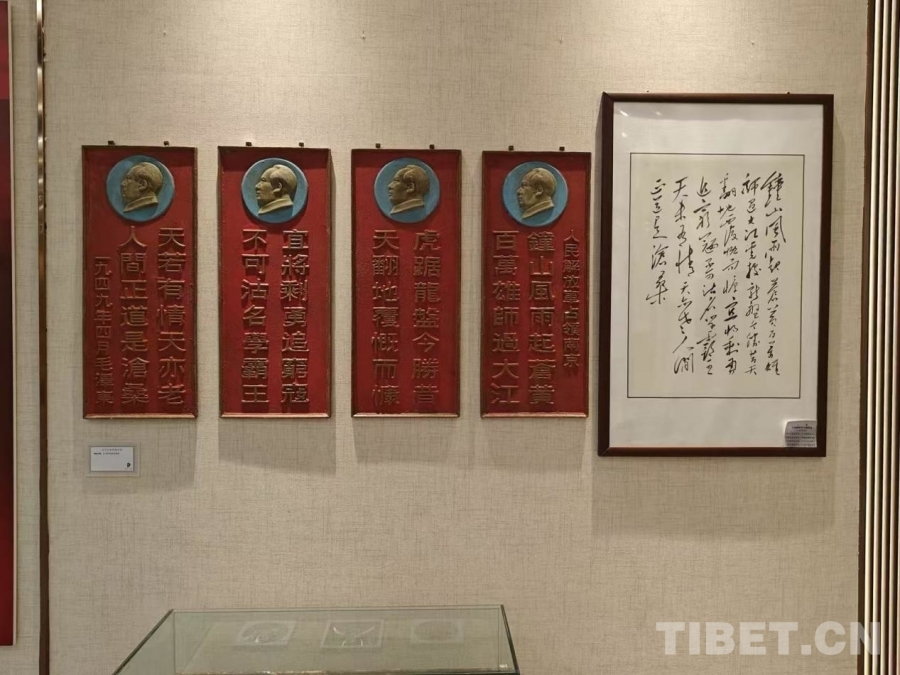 人民解放軍占領南京
鐘山風雨起倉黃
百萬雄師過大江
虎踞龍盤今勝昔
天翻地覆慨而慷
宜將剩勇追窮寇
不可沽名學霸王
天若有情天亦老
人間正道是滄桑
一九四九年四月毛澤東
鐘山風雨起蒼黃百萬雄
師過大江虎踞龍盤今勝昔天
翻地覆慨而慷宜將剩勇
追窮寇不可沽名學霸王
天若有情天亦老人間
正道是滄桑
TIBET.CN